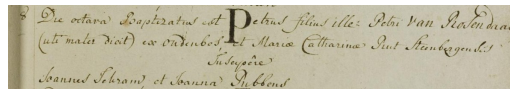 Die octava Baptizatus est Petrus filius ille: Petri Van Rosendra
(uti mater dicit) ex oudenbos, et Mariæ Catharinæ Prut Steenbergensis
Suscepere
Joannes Schram et Joanna Rubbens